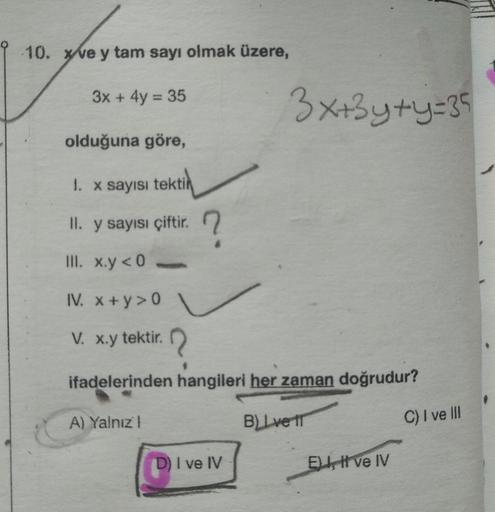 10. x ve y tam sayı olmak üzere,
3x + 4y = 35
3x+3y+y=35
olduğuna göre,
I. x sayısı tektir
II. y sayısı çiftir. ?
III. x.y < 0 –
IV. x + y > 0
V. x.y tektir. ?
ifadelerinden hangileri her zaman doğrudur?
A) Yalnız I B) I ve II C) I ve III
D) I ve IV E) I, II ve IV